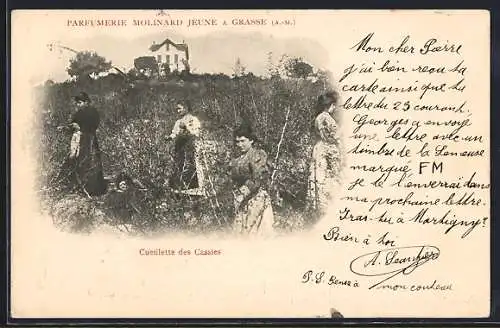 PARFUMERIE MOLINARD JEUNE A GRASSE (A.-M.)
Mon cher Pierre
j'ai bien reçu ta
carte ainsi que ta
lettre du 25 courant.
Georges a envoyé
une lettre avec un
timbre de la
marqué FM
je te l'enverrai dans
ma prochaine lettre.
Iras-tu à Martigny?
Bien à toi
A.
P.S.
mon couteau
Cueillette des Cassies